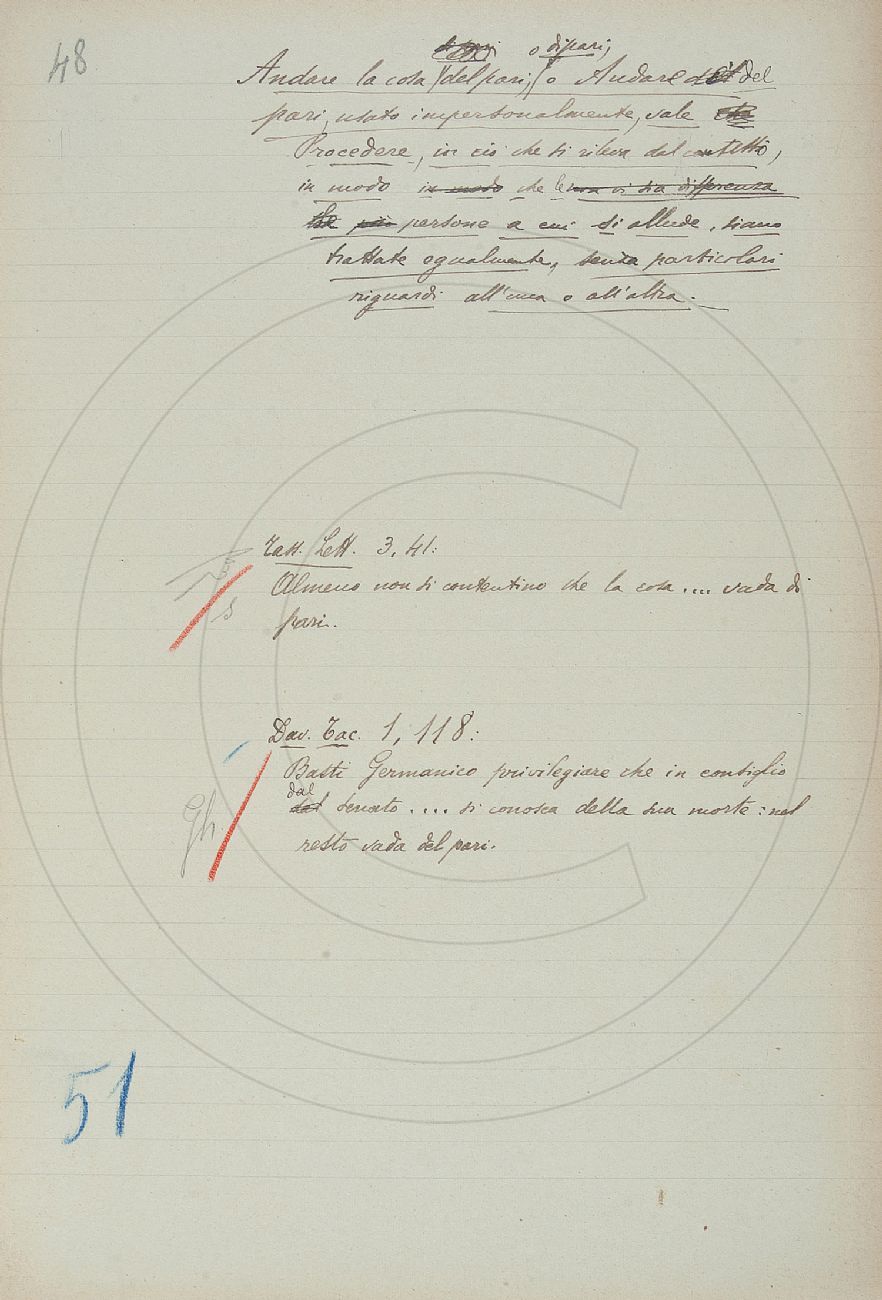 48
o di pari,
Andare la cosa del pari, o Andare del
pari, usato impersonalmente, vale
Procedere, in ciò che si rileva dal contesto,
in modo in modo che le non vi sia differenza
persone a cui si allude, siano
trattate egualmente, senza particolari
riguardi all'una o all'altra.
Tass. Lett. 3, 41:
Almeno non si contentino che la cosa .... vada di
pari.
S
Dav. Tac. 1, 118:
Basti Germanico privilegiare che in consiglio
dal
senato .... si conosca della sua morte: nel
resto vada del pari.
Gh.
51